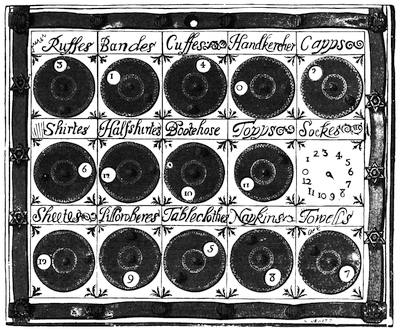 Ruffes Bandes Cuffes Handkercher Capps
3 1 4 0 9
Shirtes Halfshirtes Boothose Topps Sockes
6 12 10 11
1 2 3 4 5 6 7 8 9 10 11 12 0
Sheetes Pillowberes Tableclothes Napkins Towells
10 9 5 8 7